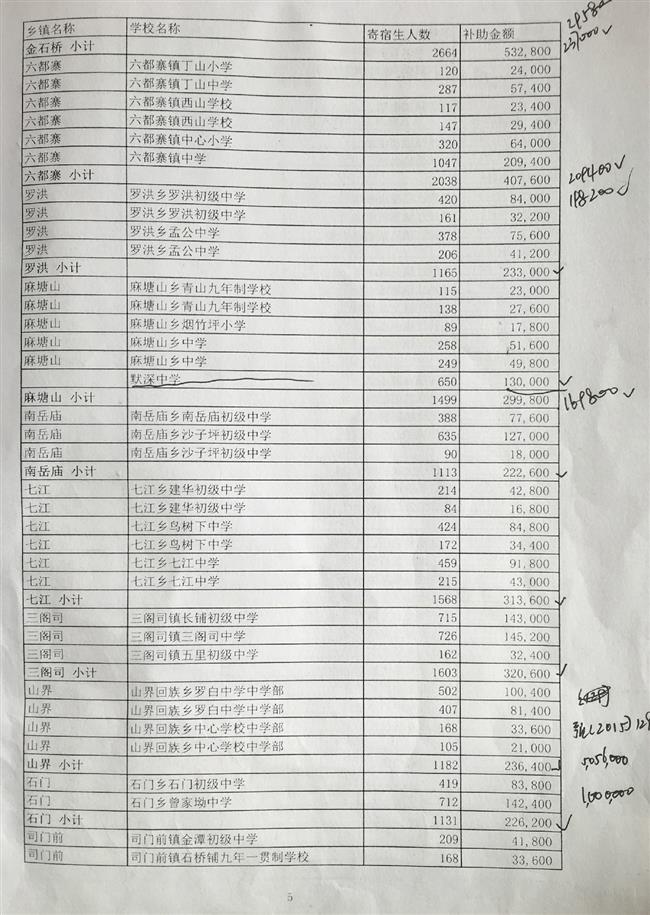 乡镇名称 学校名称 寄宿生人数 补助金额
金石桥 小计 2664 532,800
237000✓
六都寨 六都寨镇丁山小学 120 24,000
六都寨 六都寨镇丁山中学 287 57,400
六都寨 六都寨镇西山学校 117 23,400
六都寨 六都寨镇西山学校 147 29,400
六都寨 六都寨镇中心小学 320 64,000
六都寨 六都寨镇中学 1047 209,400
六都寨 小计 2038 407,600
209400✓
198200✓
罗洪 罗洪乡罗洪初级中学 420 84,000
罗洪 罗洪乡罗洪初级中学 161 32,200
罗洪 罗洪乡孟公中学 378 75,600
罗洪 罗洪乡孟公中学 206 41,200
罗洪 小计 1165 233,000 ✓
麻塘山 麻塘山乡青山九年制学校 115 23,000
麻塘山 麻塘山乡青山九年制学校 138 27,600
麻塘山 麻塘山乡烟竹坪小学 89 17,800
麻塘山 麻塘山乡中学 258 51,600
麻塘山 麻塘山乡中学 249 49,800
默深中学 650 130,000 ✓
麻塘山 小计 1499 299,800
169800 ✓
南岳庙 南岳庙乡南岳庙初级中学 388 77,600
南岳庙 南岳庙乡沙子坪初级中学 635 127,000
南岳庙 南岳庙乡沙子坪初级中学 90 18,000
南岳庙 小计 1113 222,600 ✓
七江 七江乡建华初级中学 214 42,800
七江 七江乡建华初级中学 84 16,800
七江 七江乡鸟树下中学 424 84,800
七江 七江乡鸟树下中学 172 34,400
七江 七江乡七江中学 459 91,800
七江 七江乡七江中学 215 43,000
七江 小计 1568 313,600 ✓
三阁司 三阁司镇长铺初级中学 715 143,000
三阁司 三阁司镇三阁司中学 726 145,200
三阁司 三阁司镇五里初级中学 162 32,400
三阁司 小计 1603 320,600 ✓
山界 山界回族乡罗白中学中学部 502 100,400
山界 山界回族乡罗白中学中学部 407 81,400
山界 山界回族乡中心学校中学部 168 33,600
(2015)
山界 山界回族乡中心学校中学部 105 21,000
山界 小计 1182 236,400 ✓
5,056,000
石门 石门乡石门初级中学 419 83,800
石门 石门乡曾家坳中学 712 142,400
1,000,000
石门 小计 1131 226,200 ✓
司门前 司门前镇金潭初级中学 209 41,800
司门前 司门前镇石桥铺九年一贯制学校 168 33,600
5